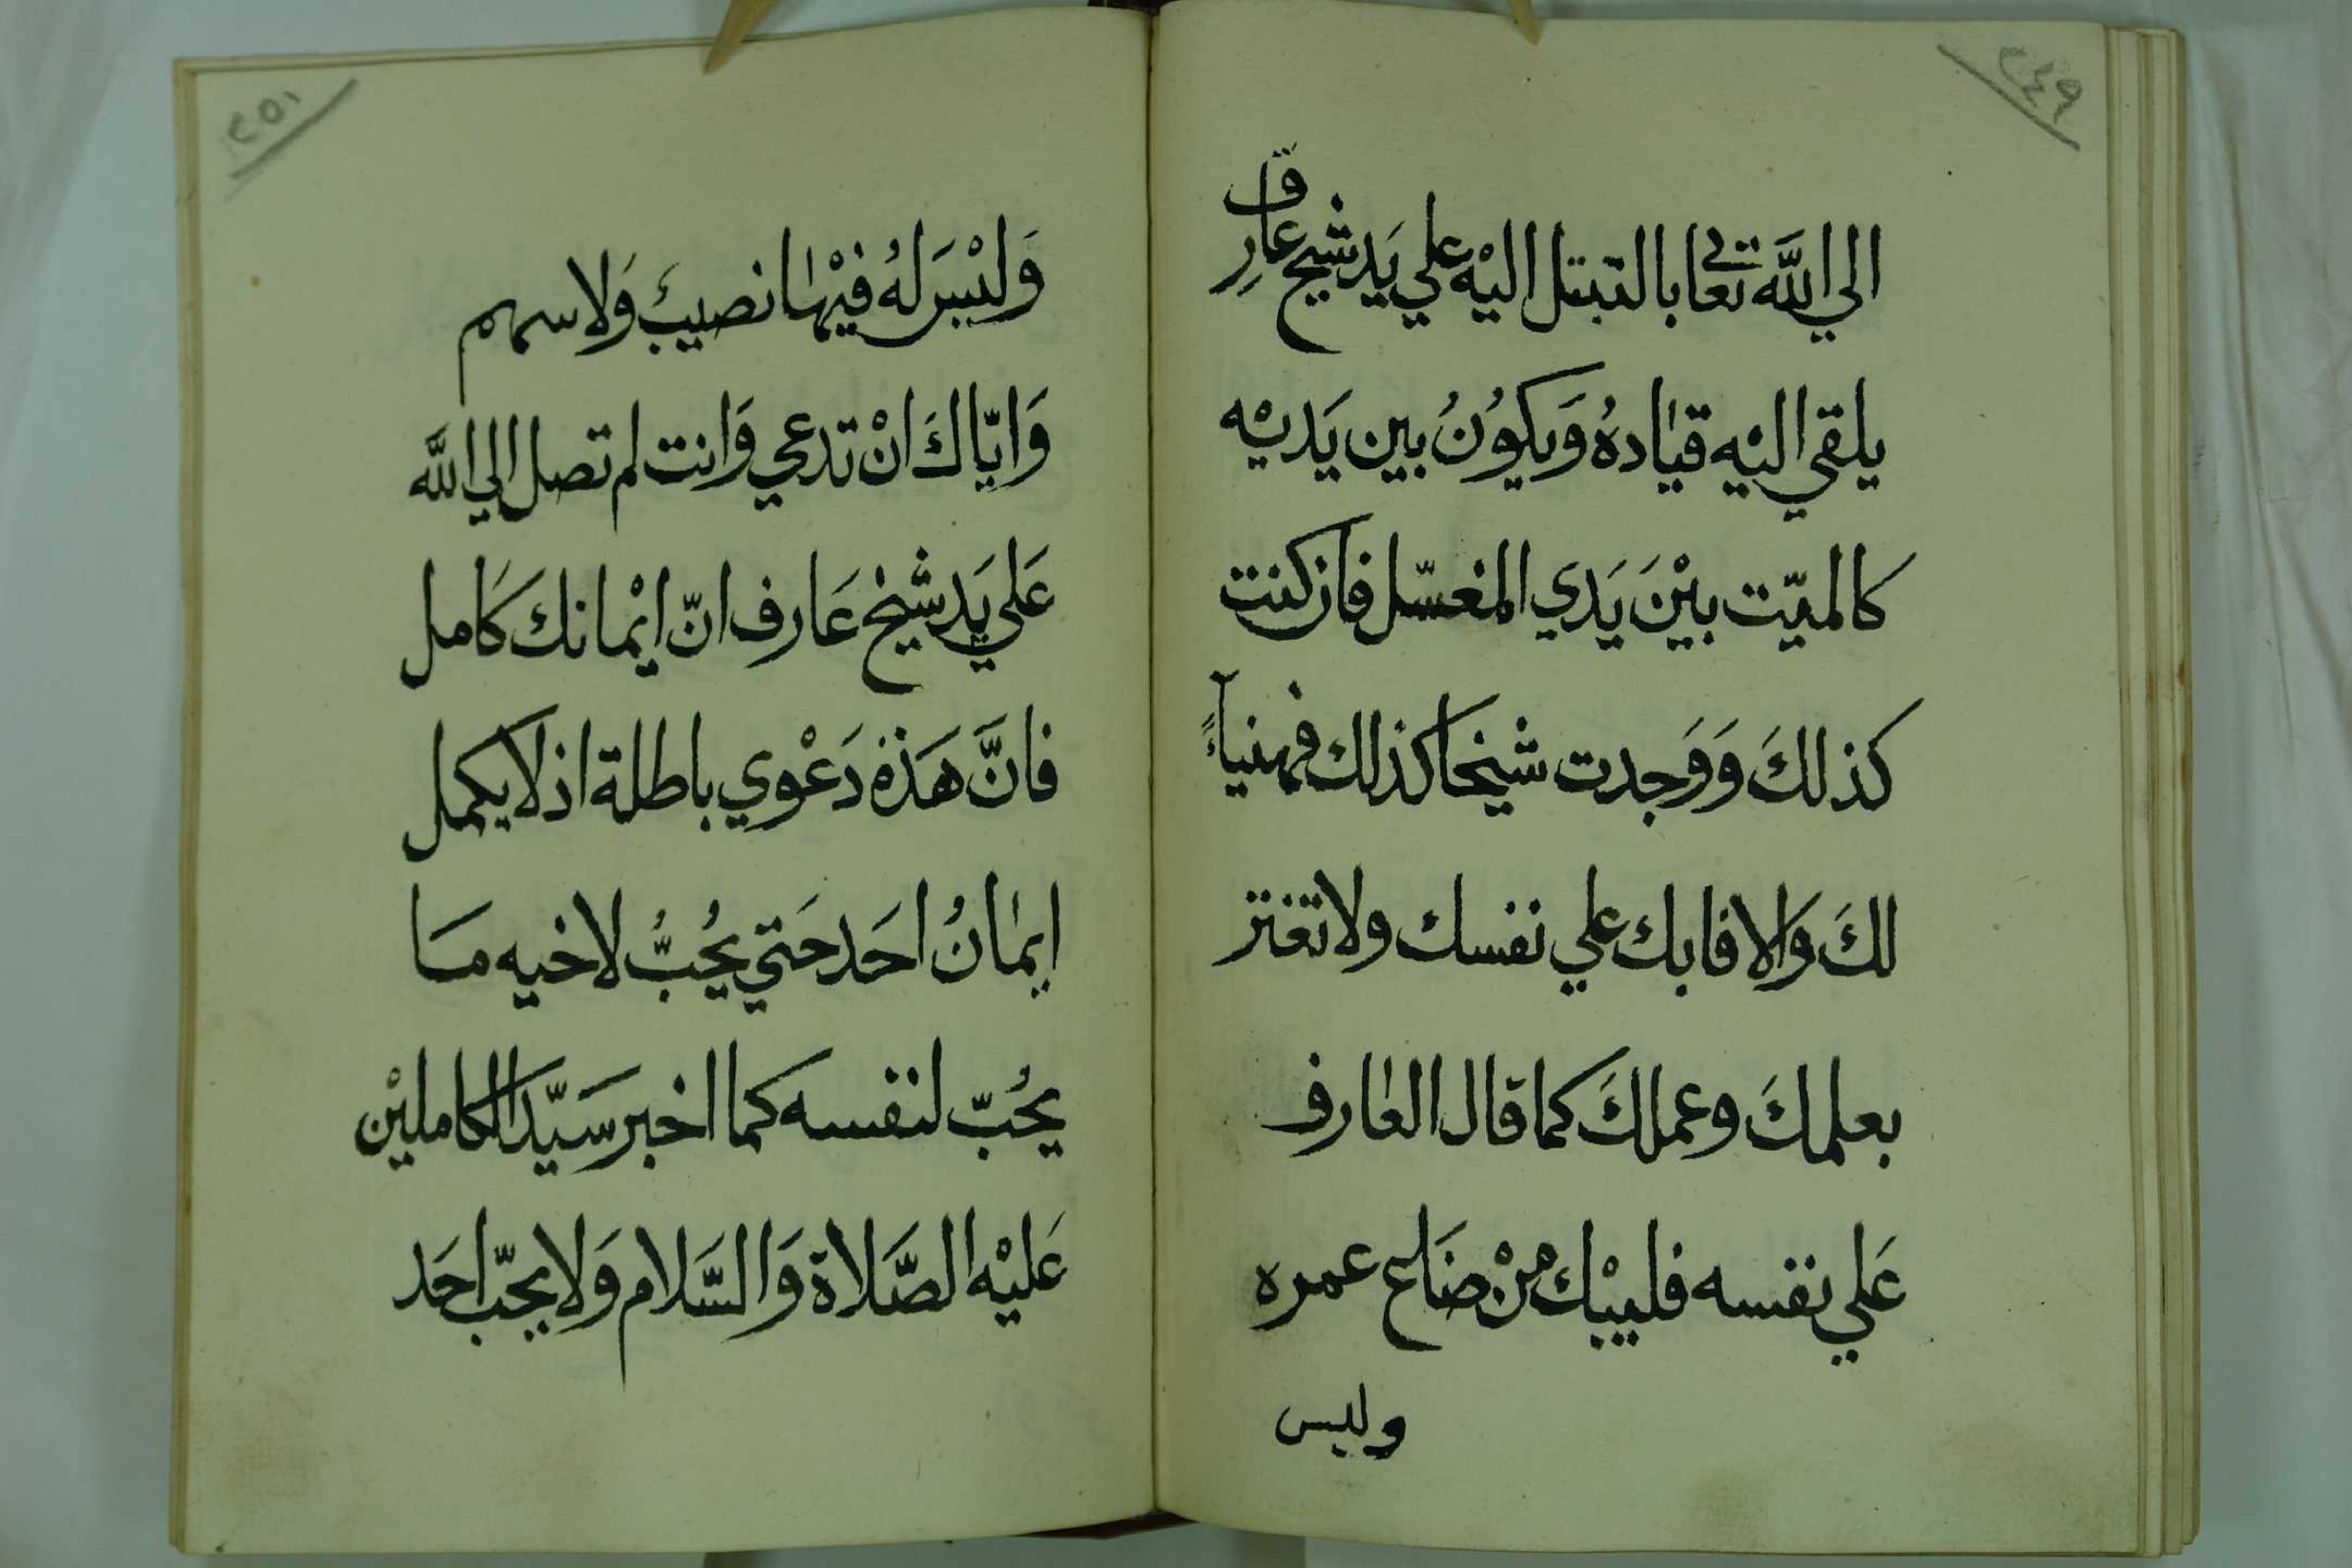 ٢٤٩
الي الله تعالى بالتبتل اليْه علي يَد شيخ عارِف
يلقي اليْه قيادهُ وَيكوُنُ بين يَديْه
كالميّت بيْنَ يَدي المغسّل فان كنت
كذلكَ وَوَجدت شيخا كذلك فهنيأً
لكَ وَالا فابك علي نفسك ولا تغتر
بعلمكَ وعملكَ كما قال العارف
عَلي نفسه فليبْك منْ ضَاع عمره
وليس
٢٥١
وَليْسَ لهُ فيْها نصيبٌ وَلا سهم
وَايّاكَ انْ تدعي وَانت لم تصل الي اللَّه
عَلي يَد شيخ عَارف انّ ايْمانك كَامل
فانَّ هَذهْ دَعْوي باطلة اذ لا يكمل
ايمانُ احَد حَتي يُحُبُّ لاخيه مَا
يحُبّ لنفسه كما اخبر سَيّد الكامليْن
عَليْه الصَّلاة وَالسَّلام وَلا يحبّ احَد